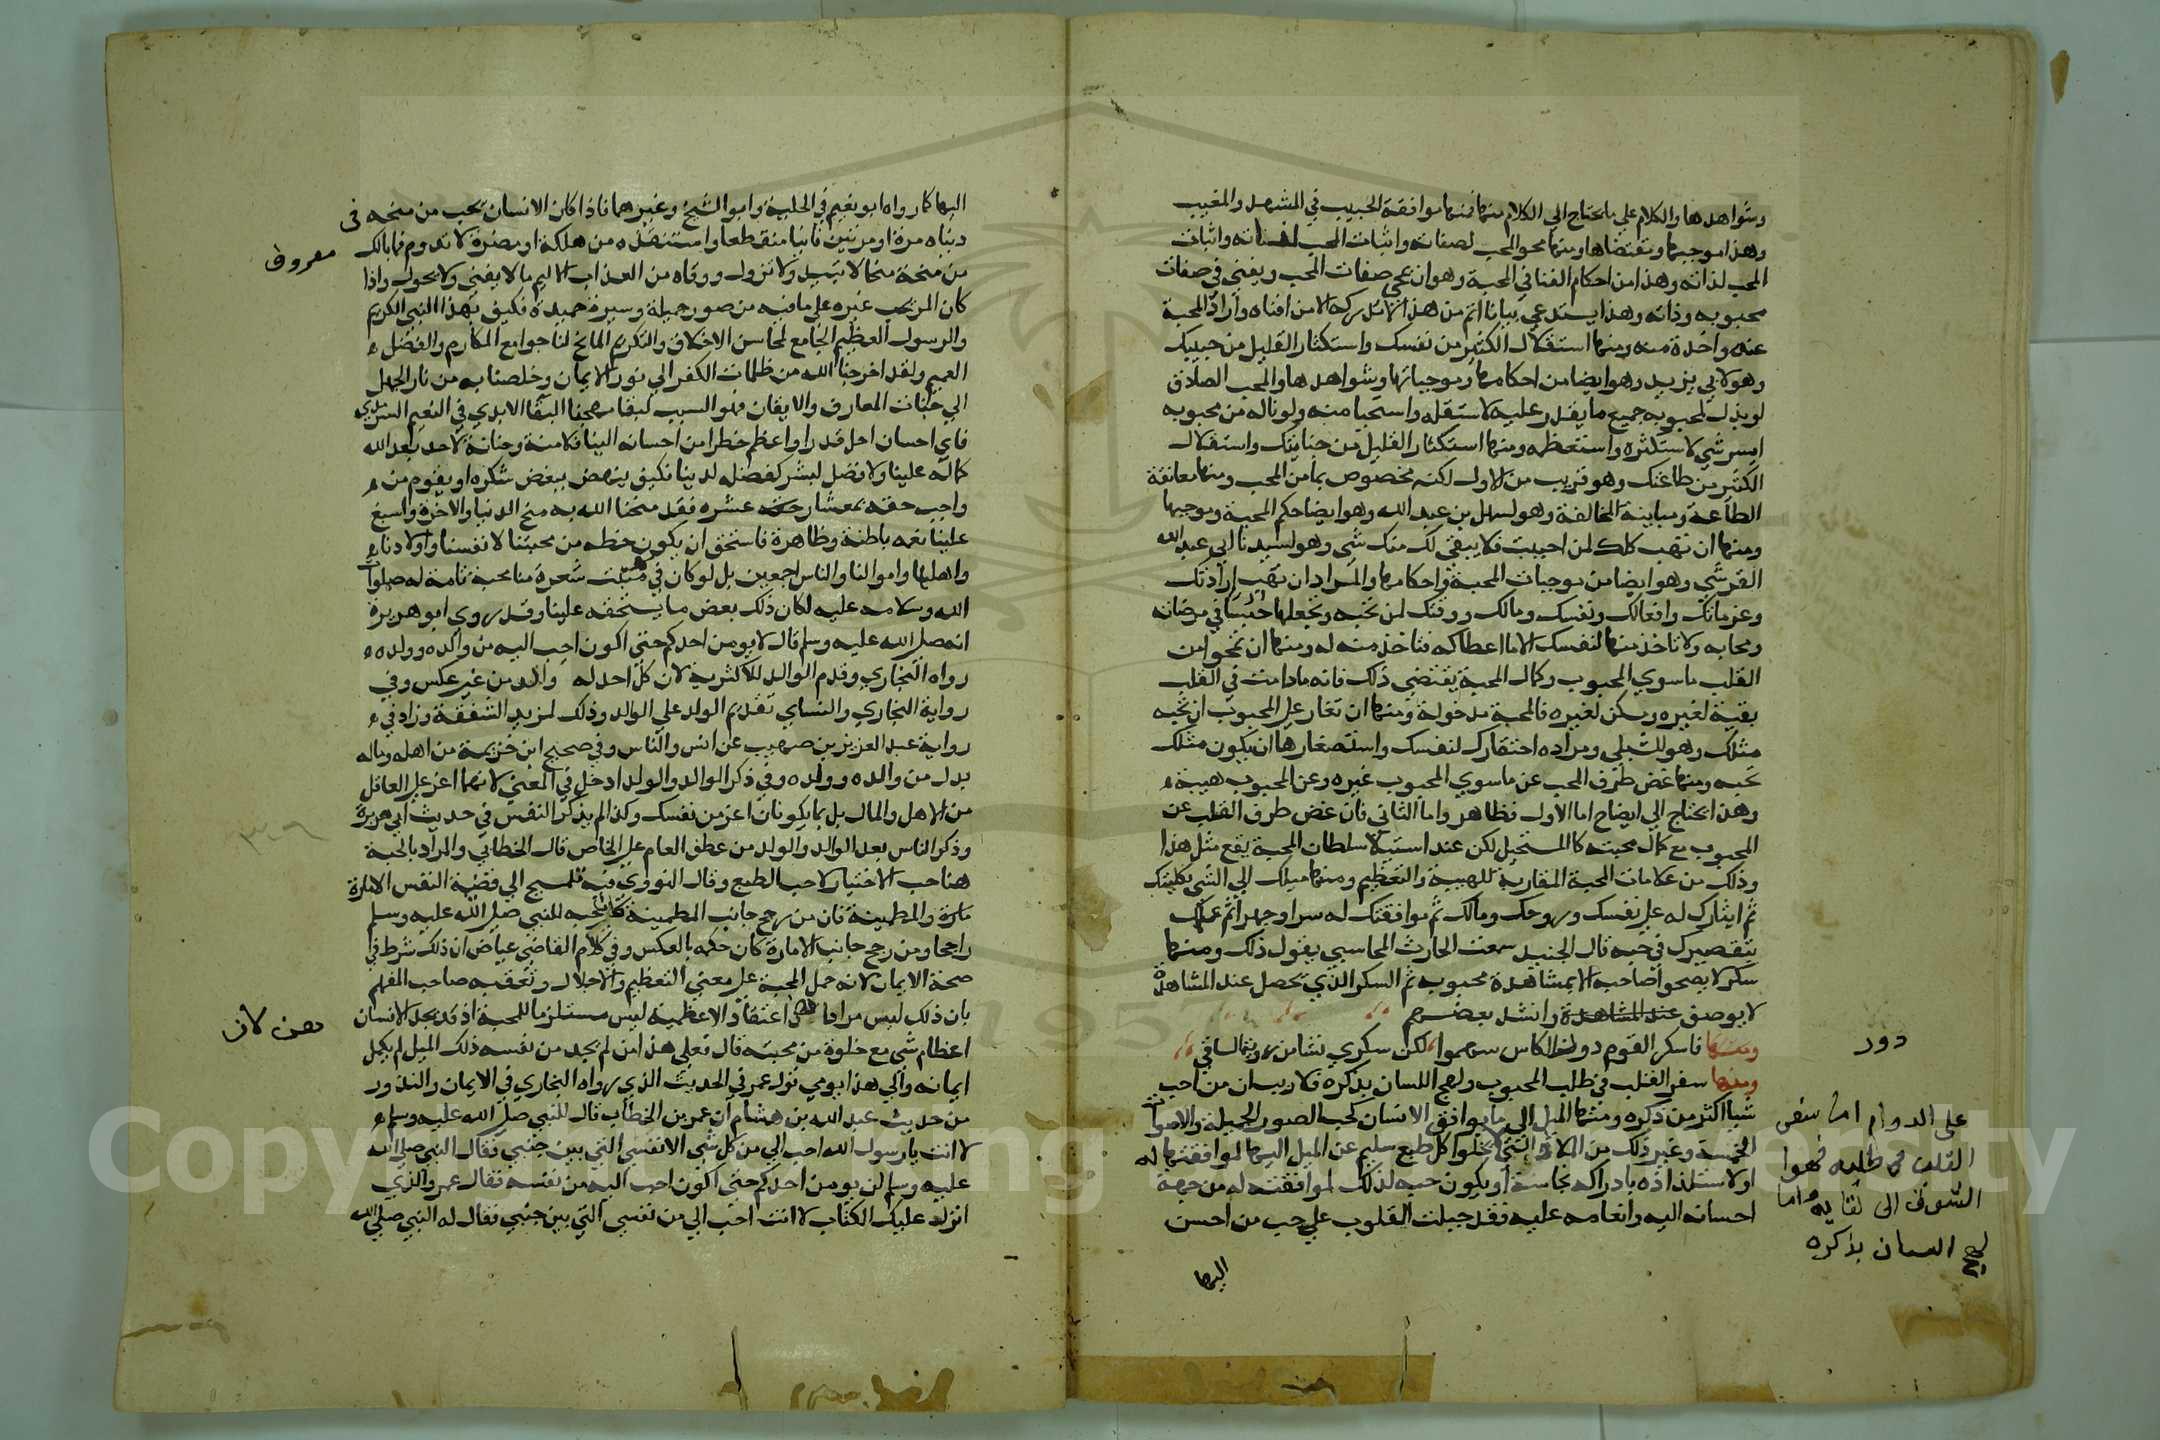 وشواهدها والكلام علي ما يحتاج الي الكلام منها فمنها موافقة الحبيب في المشهد والمغيب
وهذا موجبها ومقتضاها ومنها محو المحب لصفاته واثبات المحب لذاته واثبات
المحب لذاته وهذا من احكام الفنا في المحبة وهو ان تمحي صفات المحب ويفني في صفات
محبوبه وذاته وهذا يستدعي بيانا اتم من هذا لا يدركه الا من افناه وارد المحبة
عنه واخذه منه ومنها استقلال الكثير من نفسك واستكثار القليل من حبيبك
وهو لابي يزيد وهو ايضا من احكامها وموجباتها وشواهدها والمحب الصادق
لو بذل لمحبوبه جميع ما يقدر عليه لاستقله واستحيا منه ولو ناله من محبوبه
ايسر شي لاستكثره واستعظمه ومنها استكثار القليل من جنايتك واستقلال
الكثير من طاعتك وهو قريب من الاول لكنه مخصوص بما من المحب ومنها معانقة
الطاعة ومباينة المخالفة وهو لسهل بن عبد الله وهو ايضا حكم المحبة وموجبها
ومنها ان تهب كلك لمن احببت فلا يبقي لك منك شي وهو لسيدنا ابي عبد الله
القرشي وهو ايضا من موجبات المحبة واحكامها والمراد ان تهب ارادتك
وعزماتك وافعالك ونفسك ومالك ووقتك لمن تحبه وتجعلها حبسا في مرضاته
ومحابه ولا تاخذ منها لنفسك الا ما اعطاكه فتاخذ منه له ومنها ان تمحو من
القلب ما سوي المحبوب وكمال المحبة يقتضي ذلك فانه ما دامت في القلب
بقية لغيره ومسكن لغيره فالمحبة مدخولة ومنها ان تغار علي المحبوب ان يحبه
مثلك وهو للشبلي ومراده احتقارك لنفسك واستصغارها ان يكون مثلك
يحبه ومنها غض طرف المحب عن ما سوي المحبوب غيره وعن المحبوب هيبة
وهذا يحتاج الي ايضاح اما الاول فظاهر واما الثاني فان غض طرف القلب عن
المحبوب مع كمال محبته كالمستحيل لكن عند استيلا سلطان المحبة يقع مثل هذا
وذلك من علامات المحبة المقارنة للهيبة والتعظيم ومنها ميلك الي الشي بكليتك
ثم ايثارك له علي نفسك وروحك ومالك ثم موافقتك له سرا وجهرا ثم علمك
بتقصيرك في حبه قال الجنيد سمعت الحارث المحاسبي يقول ذلك ومنها
سكر لا يصحو صاحبه الا بمشاهدة محبوبه ثم السكر الذي يحصل عند المشاهدة
لا يوصف عند المشاهدة وانشد بعضهم
فاسكر القوم دور الكاس بينهمو لكن سكري نشا من رؤية الساقي
ومنها سفر القلب في طلب المحبوب ولهج اللسان بذكره فلا ريب ان من احب
شيا اكثر من ذكره ومنها الميل الي ما يوافق الانسان كحب الصور الجميلة والاصوات
الحسنة وغير ذلك من الملاذ التي لا يخلوا كل طبع سليم عن الميل اليها لموافقتها له
او لاستلذاذه بادراكه بحاسته او يكون حبه لذلك لموافقته له من جهة
احسانه اليه وانعامه عليه فقد جبلت القلوب علي حب من احسن
اليها
دور
على الدوام اما سفر
القلب في طلبه فهوا
الشوق الى لقايه واما
لهج اللسان بذكره
اليها كما رواه ابو نعيم في الحلية وابو الشيخ وغيرهما فاذا كان الانسان يحب من منحه في
دنياه مرة او مرتين فانيا منقطعا واستنقذه من هلكة او مضرة لا تدوم فما بالك
من منحه منحا لا تبيد ولا تزول ووقاه من العذاب الاليم ما لا يفني ولا يحول واذا
كان المر يحب غيره علي ما فيه من صور جميلة وسيرة حميدة فكيف بهذا النبي الكريم
والرسول العظيم الجامع لمحاسن الاخلاق والتكريم المانح لنا جوامع المكارم والفضل
العميم ولقد اخرجنا الله من ظلمات الكفر الي نور الايمان وخلصنا به من نار الجهل
الي جنات المعارف والايقان فهو السبب لبقا مهجنا البقا الابدي في النعيم السرمدي
فاي احسان اجل قدرا واعظم خطرا من احسانه الينا فلا منة وحنانة لاحد بعد الله
كماله علينا ولا فضل لبشر كفضله لدينا فكيف ينهض ببعض شكره او يقوم من
واجب حقه بمعشار عشره فقد منحنا الله به منح الدنيا والاخرة واسبغ
علينا نعمه باطنة وظاهرة فاستحق ان يكون حظه من محبتنا لانفسنا واولادنا
واهلينا واموالنا والناس اجمعين بل لو كان في منبت شعرة منا محبة تامة له صلوات
الله وسلامه عليه لكان ذلك بعض ما يستحقه علينا وقد روي ابو هريرة
انه صلي الله عليه وسلم قال لا يومن احدكم حتي اكون احب اليه من والده وولده
رواه البخاري وقدم الوالد للاكثرية لان كل احد له والد من غير عكس وفي
رواية البخاري والنساي تقديم الولد علي الوالد وذلك لمزيد الشفقة وزاد في
رواية عبد العزيز بن صهيب عن انس والناس وفي صحيح ابن خزيمة من اهله وماله
بدل من والده وولده وفي ذكر الوالد والولد ادخل في المعني لانهما اعز علي العاقل
من الاهل والمال بل ربما يكونان اعز من نفسك ولذا لم يذكر النفس في حديث ابي هريرة
وذكر الناس بعد الوالد والولد من عطف العام علي الخاص قال الخطابي والمراد بالمحبة
هنا حب الاختيار لا حب الطبع وقال النووي فيه تلميح الي قضية النفس الامارة
والمطمينة فان من رجح جانب المطمينة كان حبه للنبي صلي الله عليه وسلم
راجحا ومن رجح جانب الامارة كان حكمه بالعكس وفي كلام القاضي عياض ان ذلك شرط في
صحة الايمان لانه حمل المحبة علي معني التعظيم والاجلال وتعقبه صاحب المفهم
بان ذلك ليس مرادا اعتقاد الاعظمية ليس مستلزما للمحبة اذ قد يجد الانسان
اعظام شي مع خلوة من محبته قال فعلي هذا من لم يجد من نفسه ذلك الميل لم يكمل
ايمانه والي هذا يومي قول عمر في الحديث الذي رواه البخاري في الايمان والنذور
من حديث عبد الله بن هشام ان عمر بن الخطاب قال للنبي صلي الله عليه وسلم
لا انت يا رسول الله احب الي من كل شي الا نفسي التي بين جنبي فقال النبي صلي الله
عليه وسلم لن يومن احدكم حتي اكون احب اليه من نفسه فقال عمر والذي
انزل عليك الكتاب لا انت احب الي من نفسي التي بين جنبي فقال له النبي صلي الله
معروف
لان
٣٠٦
Copy ing ersity